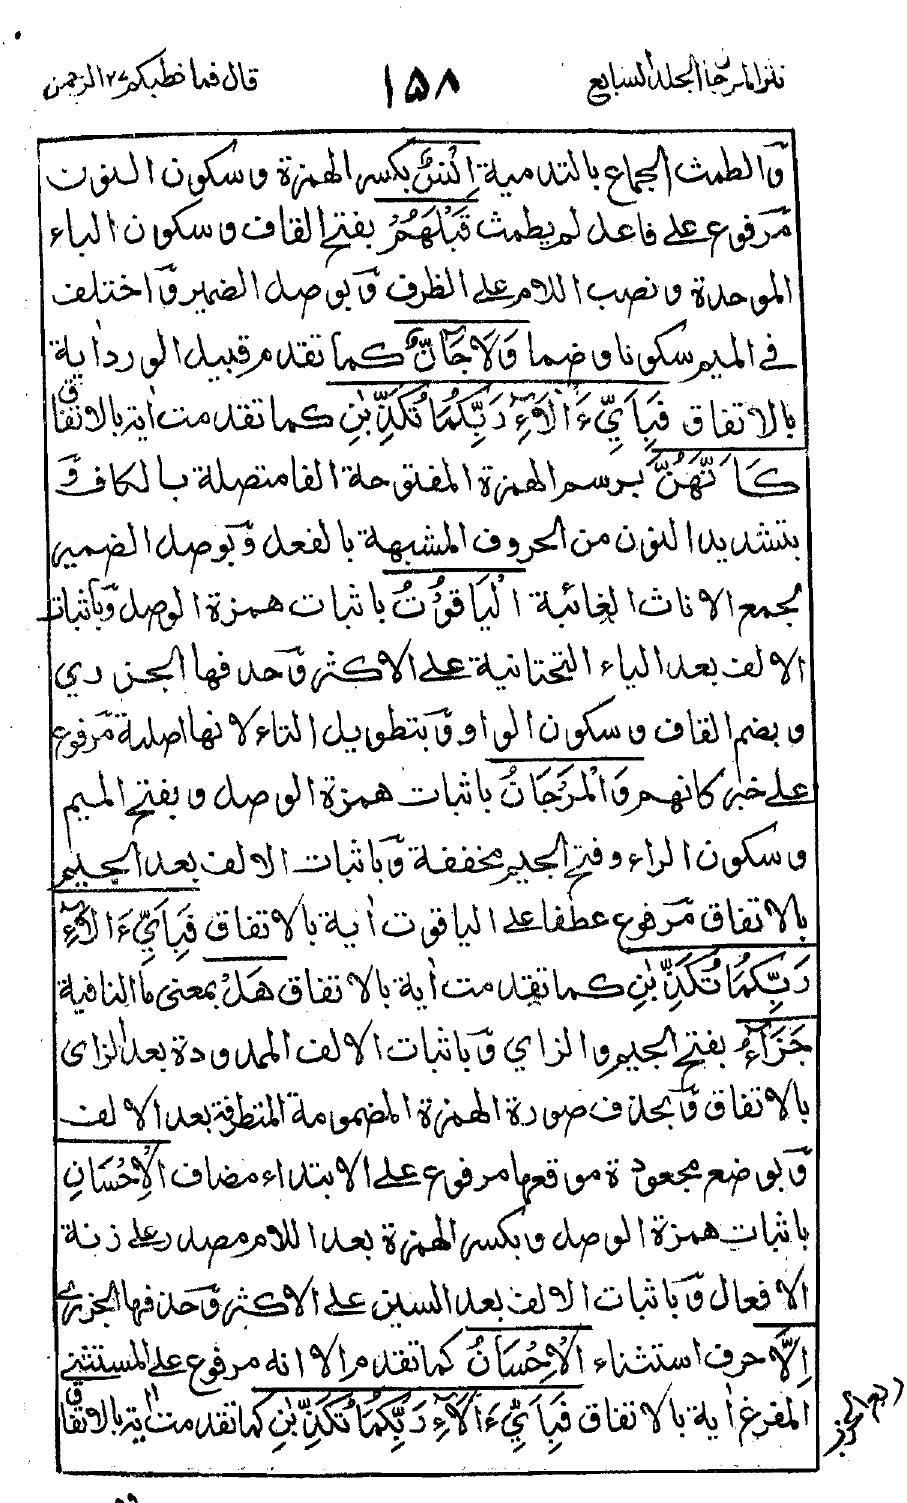 نثر المرجان المجلد السابع
١٥٨
قال فما خطبكم ٢٧ الرحمن
والطمث الجماع بالتدمية اِنْسٌ بكسر الهمزة وسكون النون
مرفوع على فاعل لم يطمث قَبْلَهُمْ بفتح القاف وسكون الباء
الموحدة ونصب اللام على الظرف وبوصل الضمير واختلف
في الميم سكونا وضما وَلَا جَآنٌّ كما تقدم قبيل الورد اٰية
بالاتفاق فَبِاَيِّ ءَالَآءِ رَبِّكُمَا تُكَذِّبٰنِ كما تقدمت اٰية بالاتفاق
كَاَنَّهُنَّ برسم الهمزة المفتوحة الفا متصلة بالكاف و
بتشديد النون من الحروف المشبهة بالفعل وبوصل الضمير
لجمع الاناث الغائبة الْيَاقُوْتُ باثبات همزة الوصل وباثبات
الالف بعد الياء التحتانية على الاكثر وحذفها الجزري
وبضم القاف وسكون الواو وبتطويل التاء لانها اصلية مرفوع
على خبر كانهم وَالْمَرْجَانُ باثبات همزة الوصل وبفتح الميم
وسكون الراء وفتح الجيم مخففة وباثبات الالف بعد الجيم
بالاتفاق مرفوع عطفا على الياقوت اٰية بالاتفاق فَبِاَيِّ ءَالَآءِ
رَبِّكُمَا تُكَذِّبٰنِ كما تقدمت اٰية بالاتفاق هَلْ بمعنى ما النافية
جَزَآءُ بفتح الجيم والزاي وباثبات الالف الممدودة بعد الزاى
بالاتفاق وبحذف صورة الهمزة المضمومة المتطرفة بعد الالف
وبوضع مجعودة موقعها مرفوع على الابتداء مضاف الْاِحْسَانِ
باثبات همزة الوصل وبكسر الهمزة بعد اللام مصدر على زنة
الافعال وباثبات الالف بعد السين على الاكثر وحذفها الجزري
اِلَّا حرف استثناء الْاِحْسَانُ كما تقدم الا انه مرفوع على المستثنى
المفرغ اٰية بالاتفاق فَبِاَيِّ ءَالَآءِ رَبِّكُمَا تُكَذِّبٰنِ كما تقدمت اٰية بالاتفاق
ربع الحزب